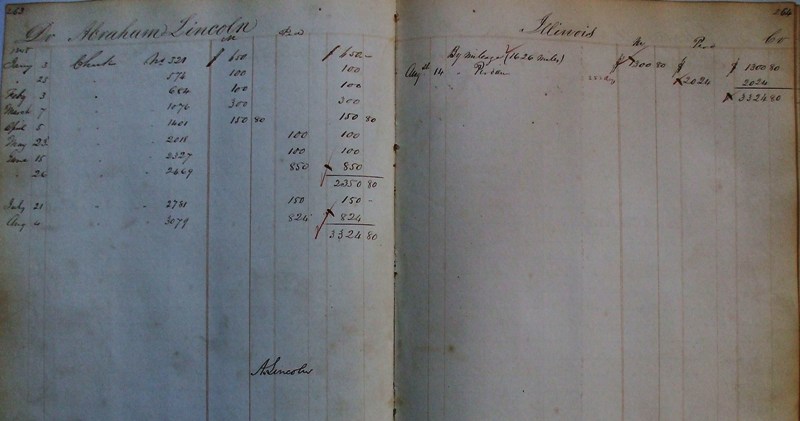 263
Dr Abraham Lincoln
M P.D
1848
Jany 3 Check No 320 $ 650 $ 650 -
" 25 " " 574 100 100
Feby 3 " " 684 100 100
March 7 " " 1076 300 300
April 5 " " 1401 150 80 150 80
May 23 " " 2018 100 100
June 15 " " 2327 100 100
" 26 " " 2469 850 850
2350 80
July 21 " " 2781 150 150 -
Aug 4 " " 3079 824 824
3324 80
A Lincoln
264
Illinois Cr
By mileage (1626 miles) $ 1300 80 $ $ 1300 80
Augst 14 " 2024 2024
$ 3324 80